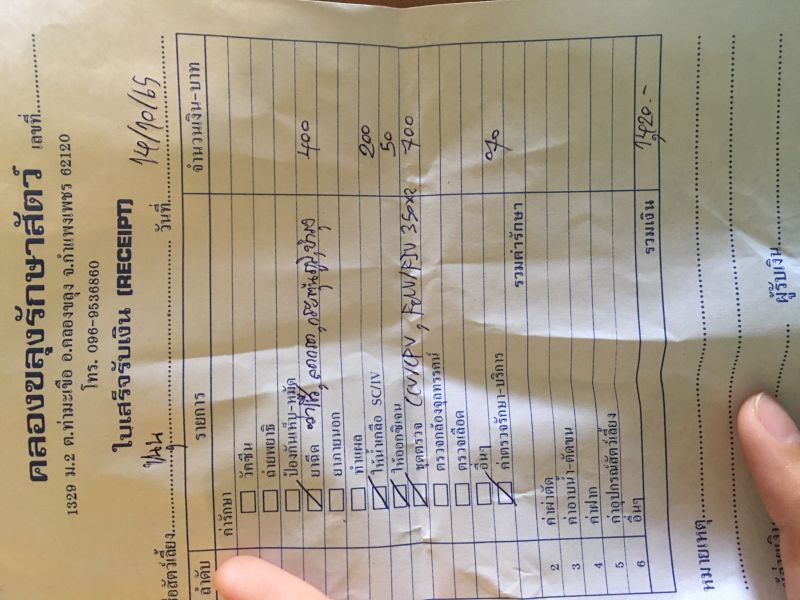 คลองขลุงรักษาสัตว์ เลขที่
1329 ม.2 ต.ท่ามะเขือ อ.คลองขลุง จ.กำแพงเพชร 62120
โทร. 096-9536860
ใบเสร็จรับเงิน (RECEIPT)
ชื่อสัตว์เลี้ยง วันที่ 14/10/65
ลำดับ รายการ จำนวนเงิน-บาท
ค่ารักษา
วัคซีน
ถ่ายพยาธิ
ป้องกันเห็บ-หมัด
ยาฉีด 400
ยาภายนอก
ทำแผล
ให้น้ำเกลือ SC/IV 200
ให้ออกซิเจน 50
ชุดตรวจ CCV/CPV, FeLV/FIV 350x2 700
ตรวจกล้องจุลทรรศน์
ตรวจเลือด
อื่นๆ
ค่าตรวจรักษา-บริการ
รวมค่ารักษา
2 ค่าผ่าตัด
3 ค่าอาบน้ำ-ตัดขน
4 ค่าฝาก
5 ค่าอุปกรณ์สัตว์เลี้ยง
6 อื่นๆ
รวมเงิน 1,420.-
หมายเหตุ
ผู้รับเงิน